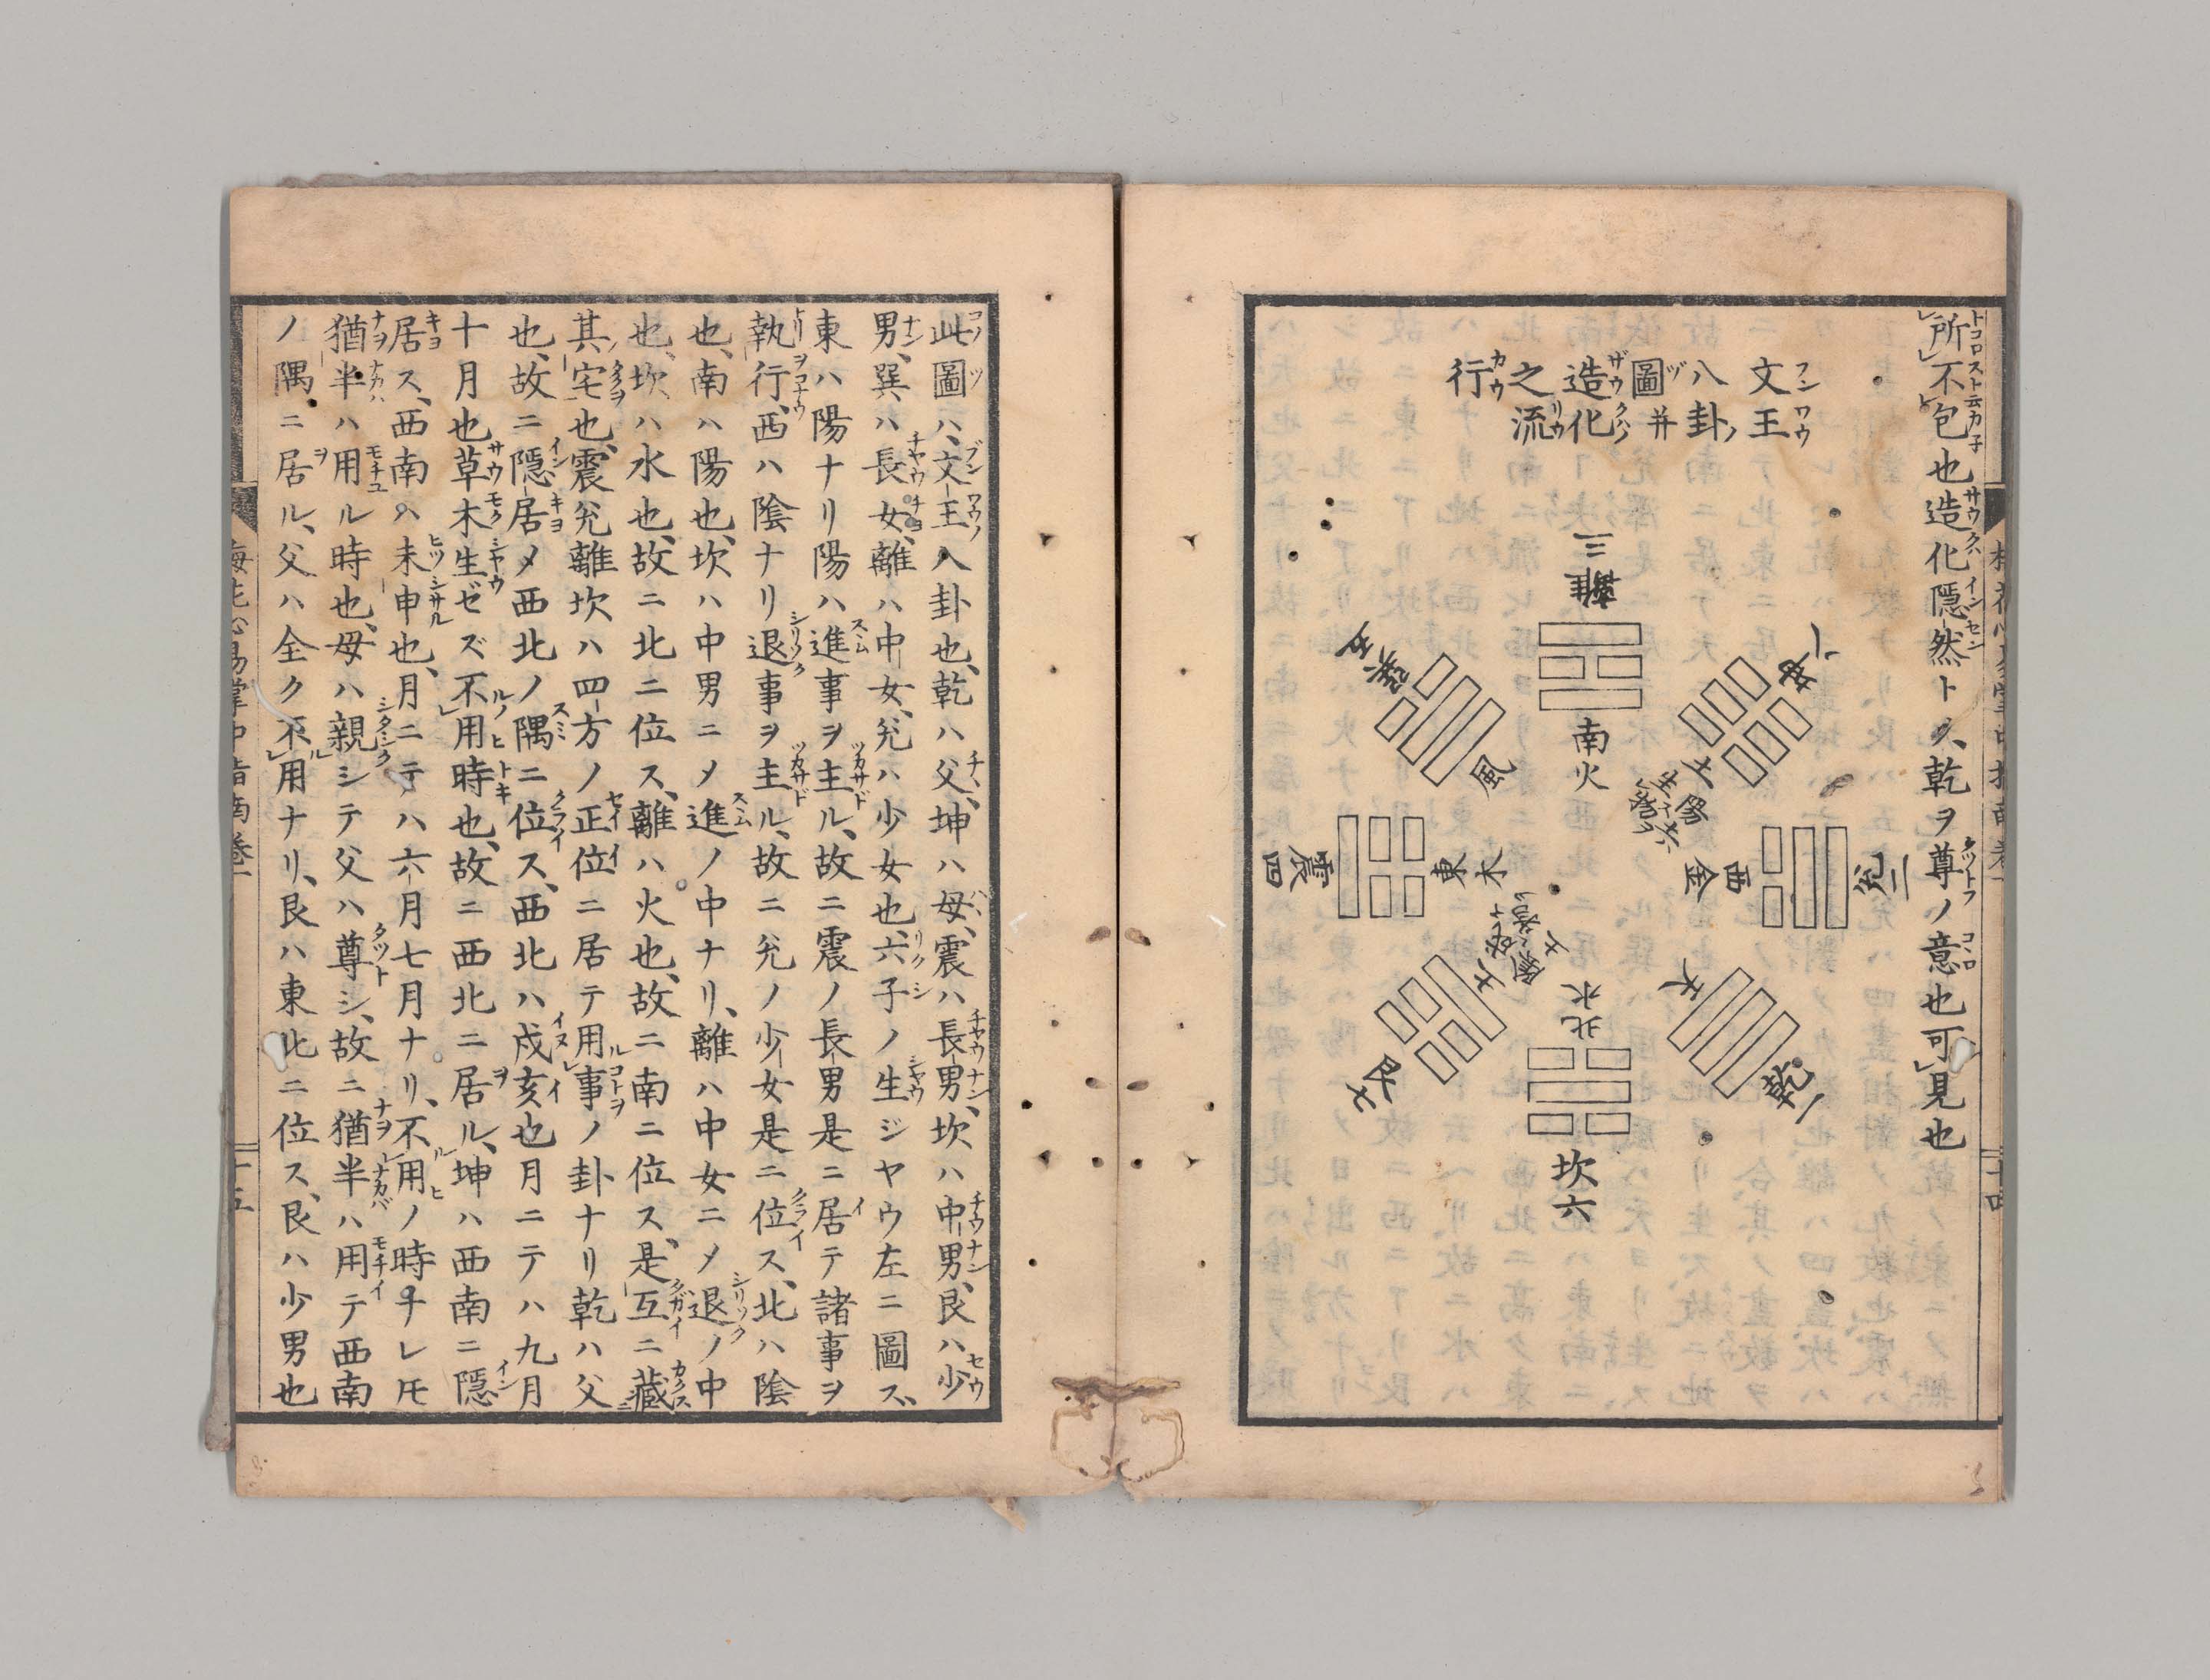 所不包也造化隱然トス、乾ヲ尊ノ意也可見也
文王
八卦
圖并
造化
之流
行
離三
南火
坤八
土
兌二
西金
乾一
天
坎六
北水
艮七
土
震四
東木
巽五
風
十四
此圖ハ、文王八卦也、乾ハ父、坤ハ母、震ハ長男、坎ハ中男、艮ハ少
男、巽ハ長女、離ハ中女、兌ハ少女也、六子ノ生ジヤウ左ニ圖ス、
東ハ陽ナリ陽ハ進事ヲ主ル、故ニ震ノ長男是ニ居テ諸事ヲ
執行、西ハ陰ナリ退事ヲ主ル、故ニ兌ノ少女是ニ位ス、北ハ陰
也、南ハ陽也、坎ハ中男ニメ進ノ中ナリ、離ハ中女ニメ退ノ中
也、坎ハ水也、故ニ北ニ位ス、離ハ火也、故ニ南ニ位ス、是互ニ藏
其宅也、震兌離坎ハ四方ノ正位ニ居テ用事ノ卦ナリ乾ハ父
也、故ニ隱居メ西北ノ隅ニ位ス、西北ハ戌亥也月ニテハ九月
十月也草木生ゼズ不用時也、故ニ西北ニ居ル、坤ハ西南ニ隱
居ス、西南ハ未申也、月ニテハ六月七月ナリ、不用ノ時ナレ𪜈
猶半ハ用ル時也、母ハ親シテ父ハ尊シ、故ニ猶半ハ用テ西南
ノ隅ニ居ル、父ハ全ク不用ナリ、艮ハ東北ニ位ス、艮ハ少男也
十五